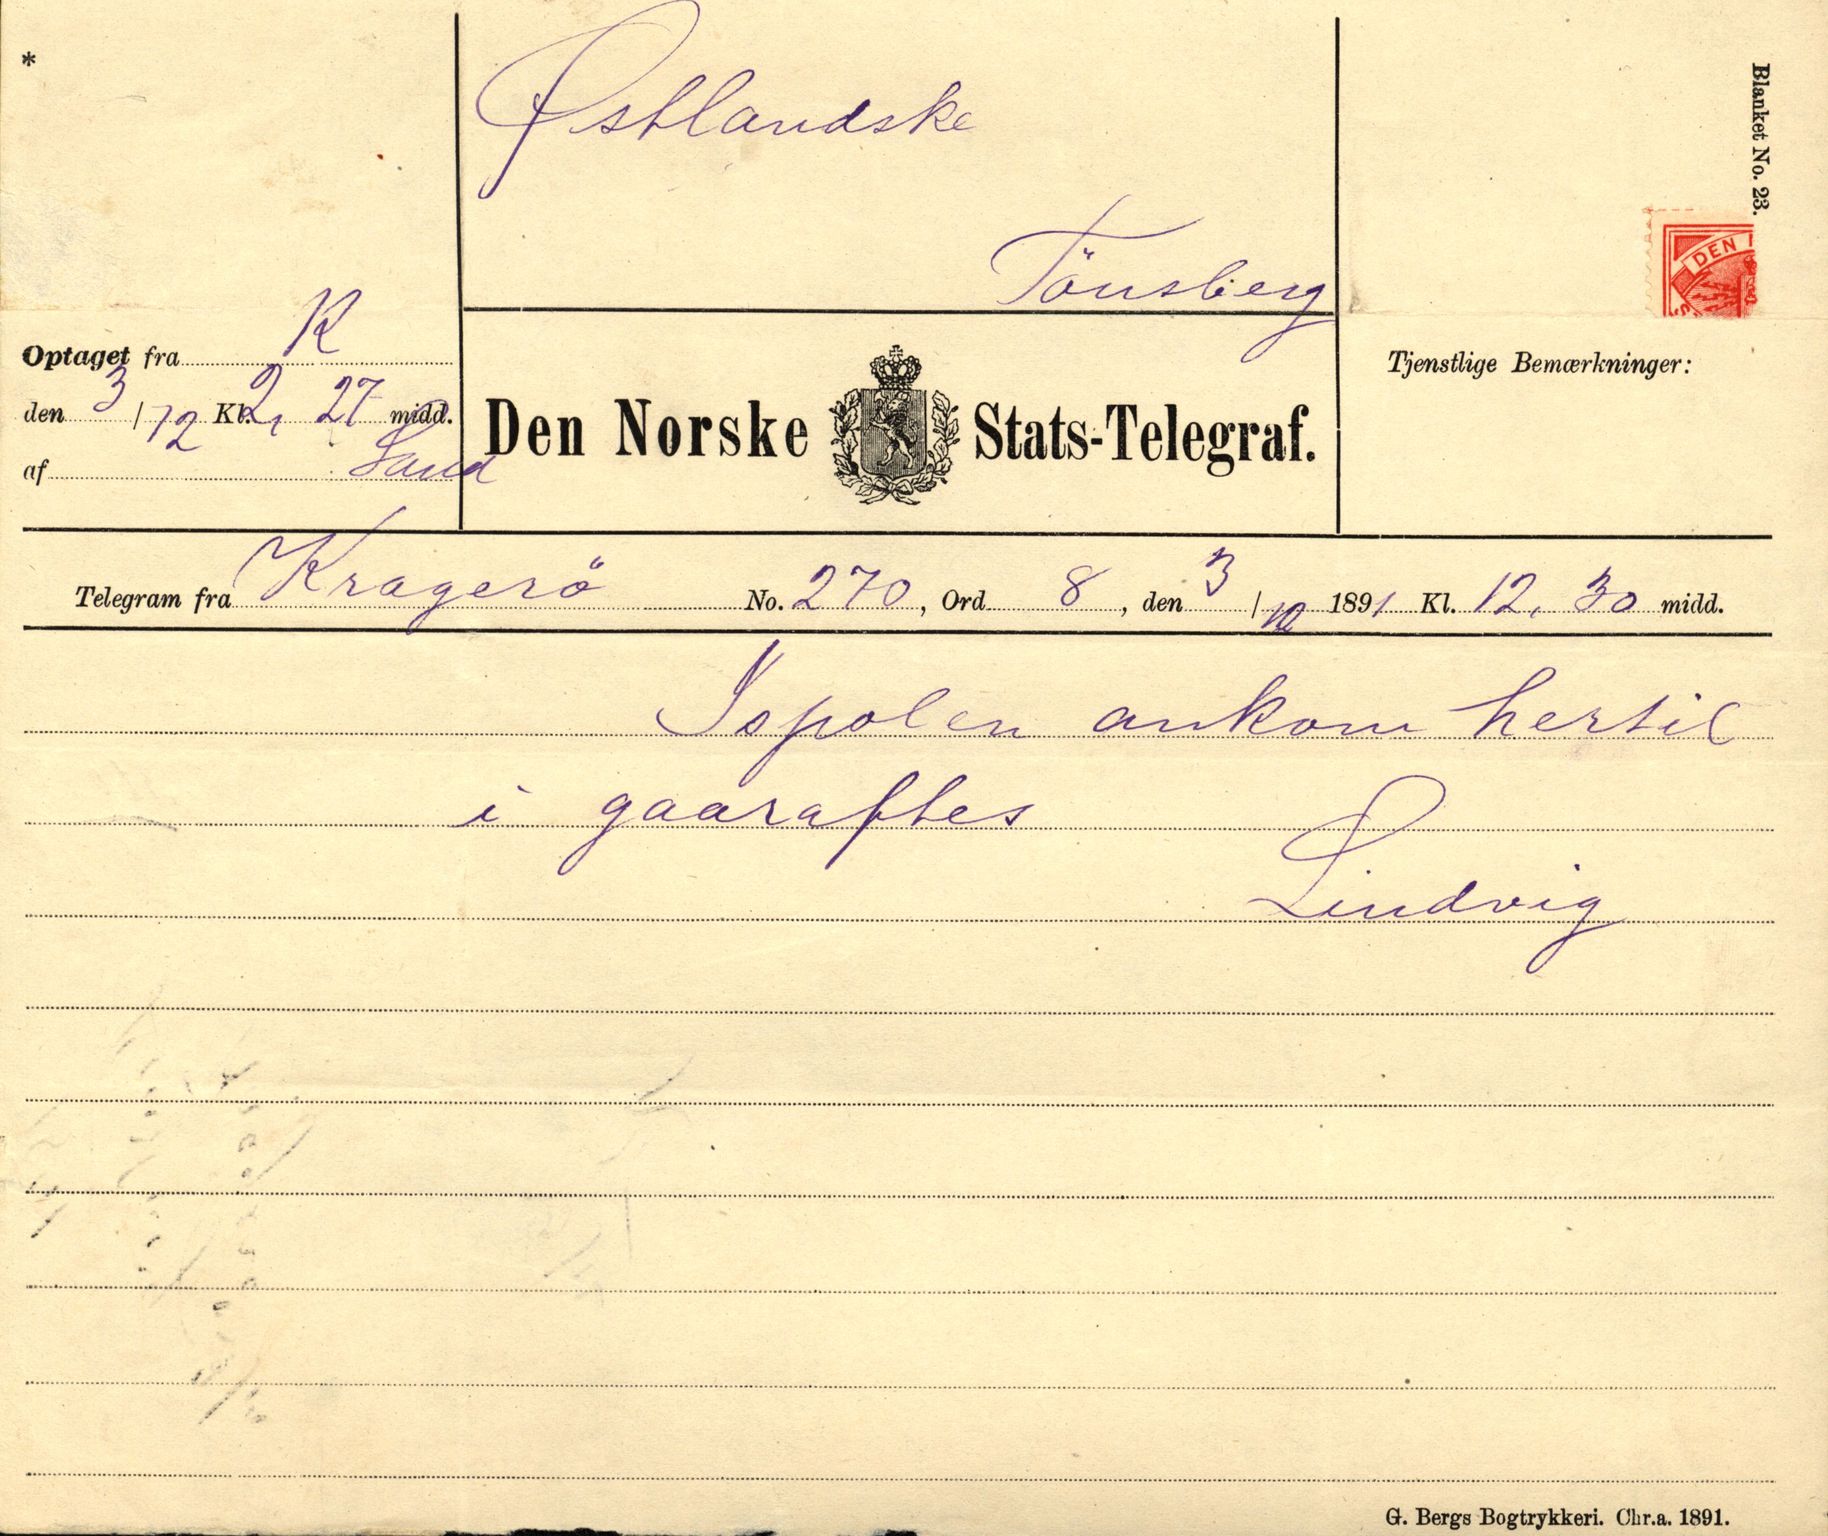 *
Østlandske
Tönsberg
Blanket No. 23.
DEN
Optaget fra K
den 3/12 Kl. 2, 27 midd.
af Sand
Den Norske Stats-Telegraf.
Tjenstlige Bemærkninger:
Telegram fra Kragerö No. 270, Ord 8, den 3/12 1891 Kl. 12, 30 midd.
Ispolen ankom hertil
i gaaraftes
Lindvig
G. Bergs Bogtrykkeri. Chr.a. 1891.